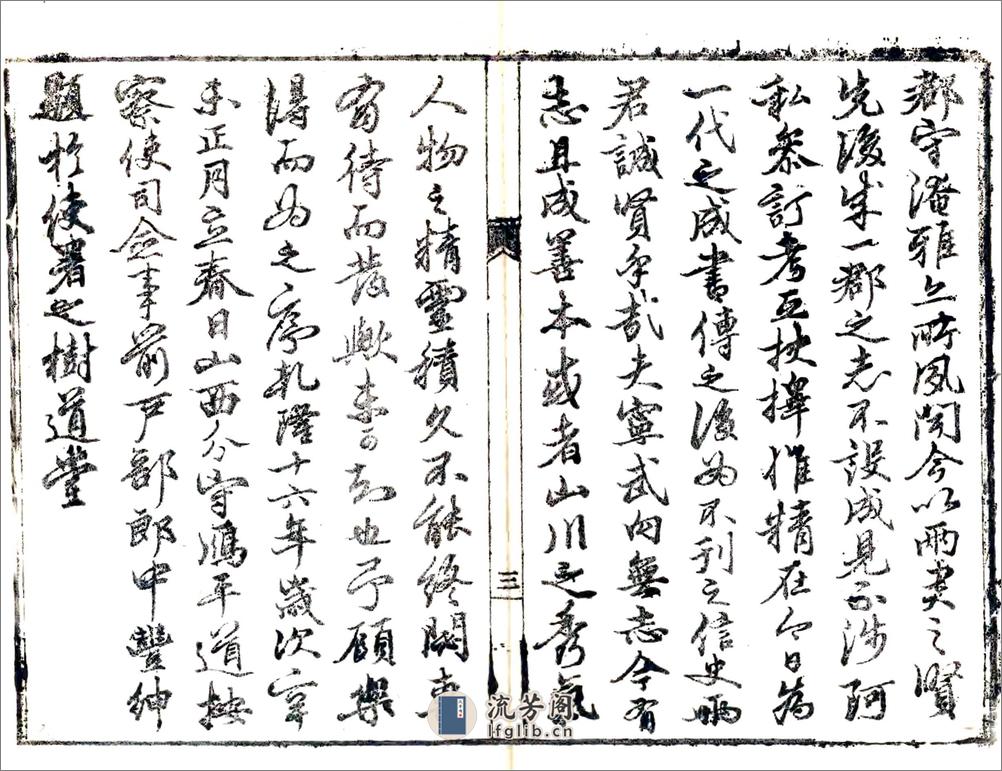 郡守淹雅亦所夙聞今以兩君之賢
先後成一郡之志不設成見不涉阿
私參訂考互抉擇惟精在今日為
一代之成書傳之後為不刊之信史兩
君誠賢乎哉夫寧武向無志今有
志且成善本或者山川之秀氣
三
人物之精靈積久不能終閟事
有待而發歟未可知也予顧樂
得而為之序乾隆十六年歲次辛
未正月立春日山西分守鴈平道按
察使司僉事前戶部郎中豐紳
題於使署之樹道堂
流芳阁
lfglib.cn